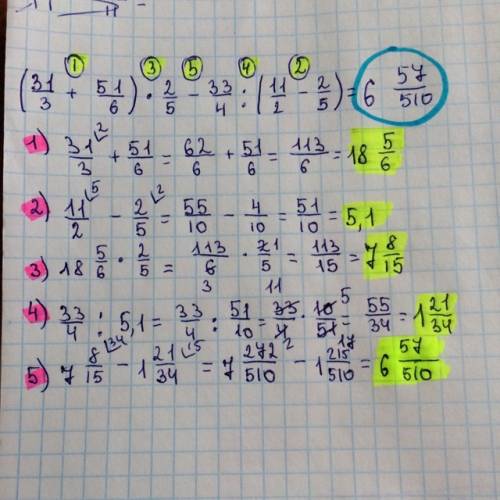 ① ③ ⑤ ④ ②
(31/3 + 51/6) · 2/5 − 33/4 : (11/2 − 2/5) = 6 57/510
1) 31/3 ² + 51/6 = 62/6 + 51/6 = 113/6 = 18 5/6
2) 11/2 ⁵ − 2/5 ² = 55/10 − 4/10 = 51/10 = 5,1
3) 18 5/6 · 2/5 = 113/6 3 · 21/5 = 113/15 = 7 8/15
4) 33/4 : 5,1 = 33/4 : 51/10 = 33 11/4 2 · 10 5/51 17 = 55/34 = 1 21/34
5) 7 8/15 ³⁴ − 1 21/34 ¹⁵ = 7 272/510 − 1 215/510 = 6 57/510